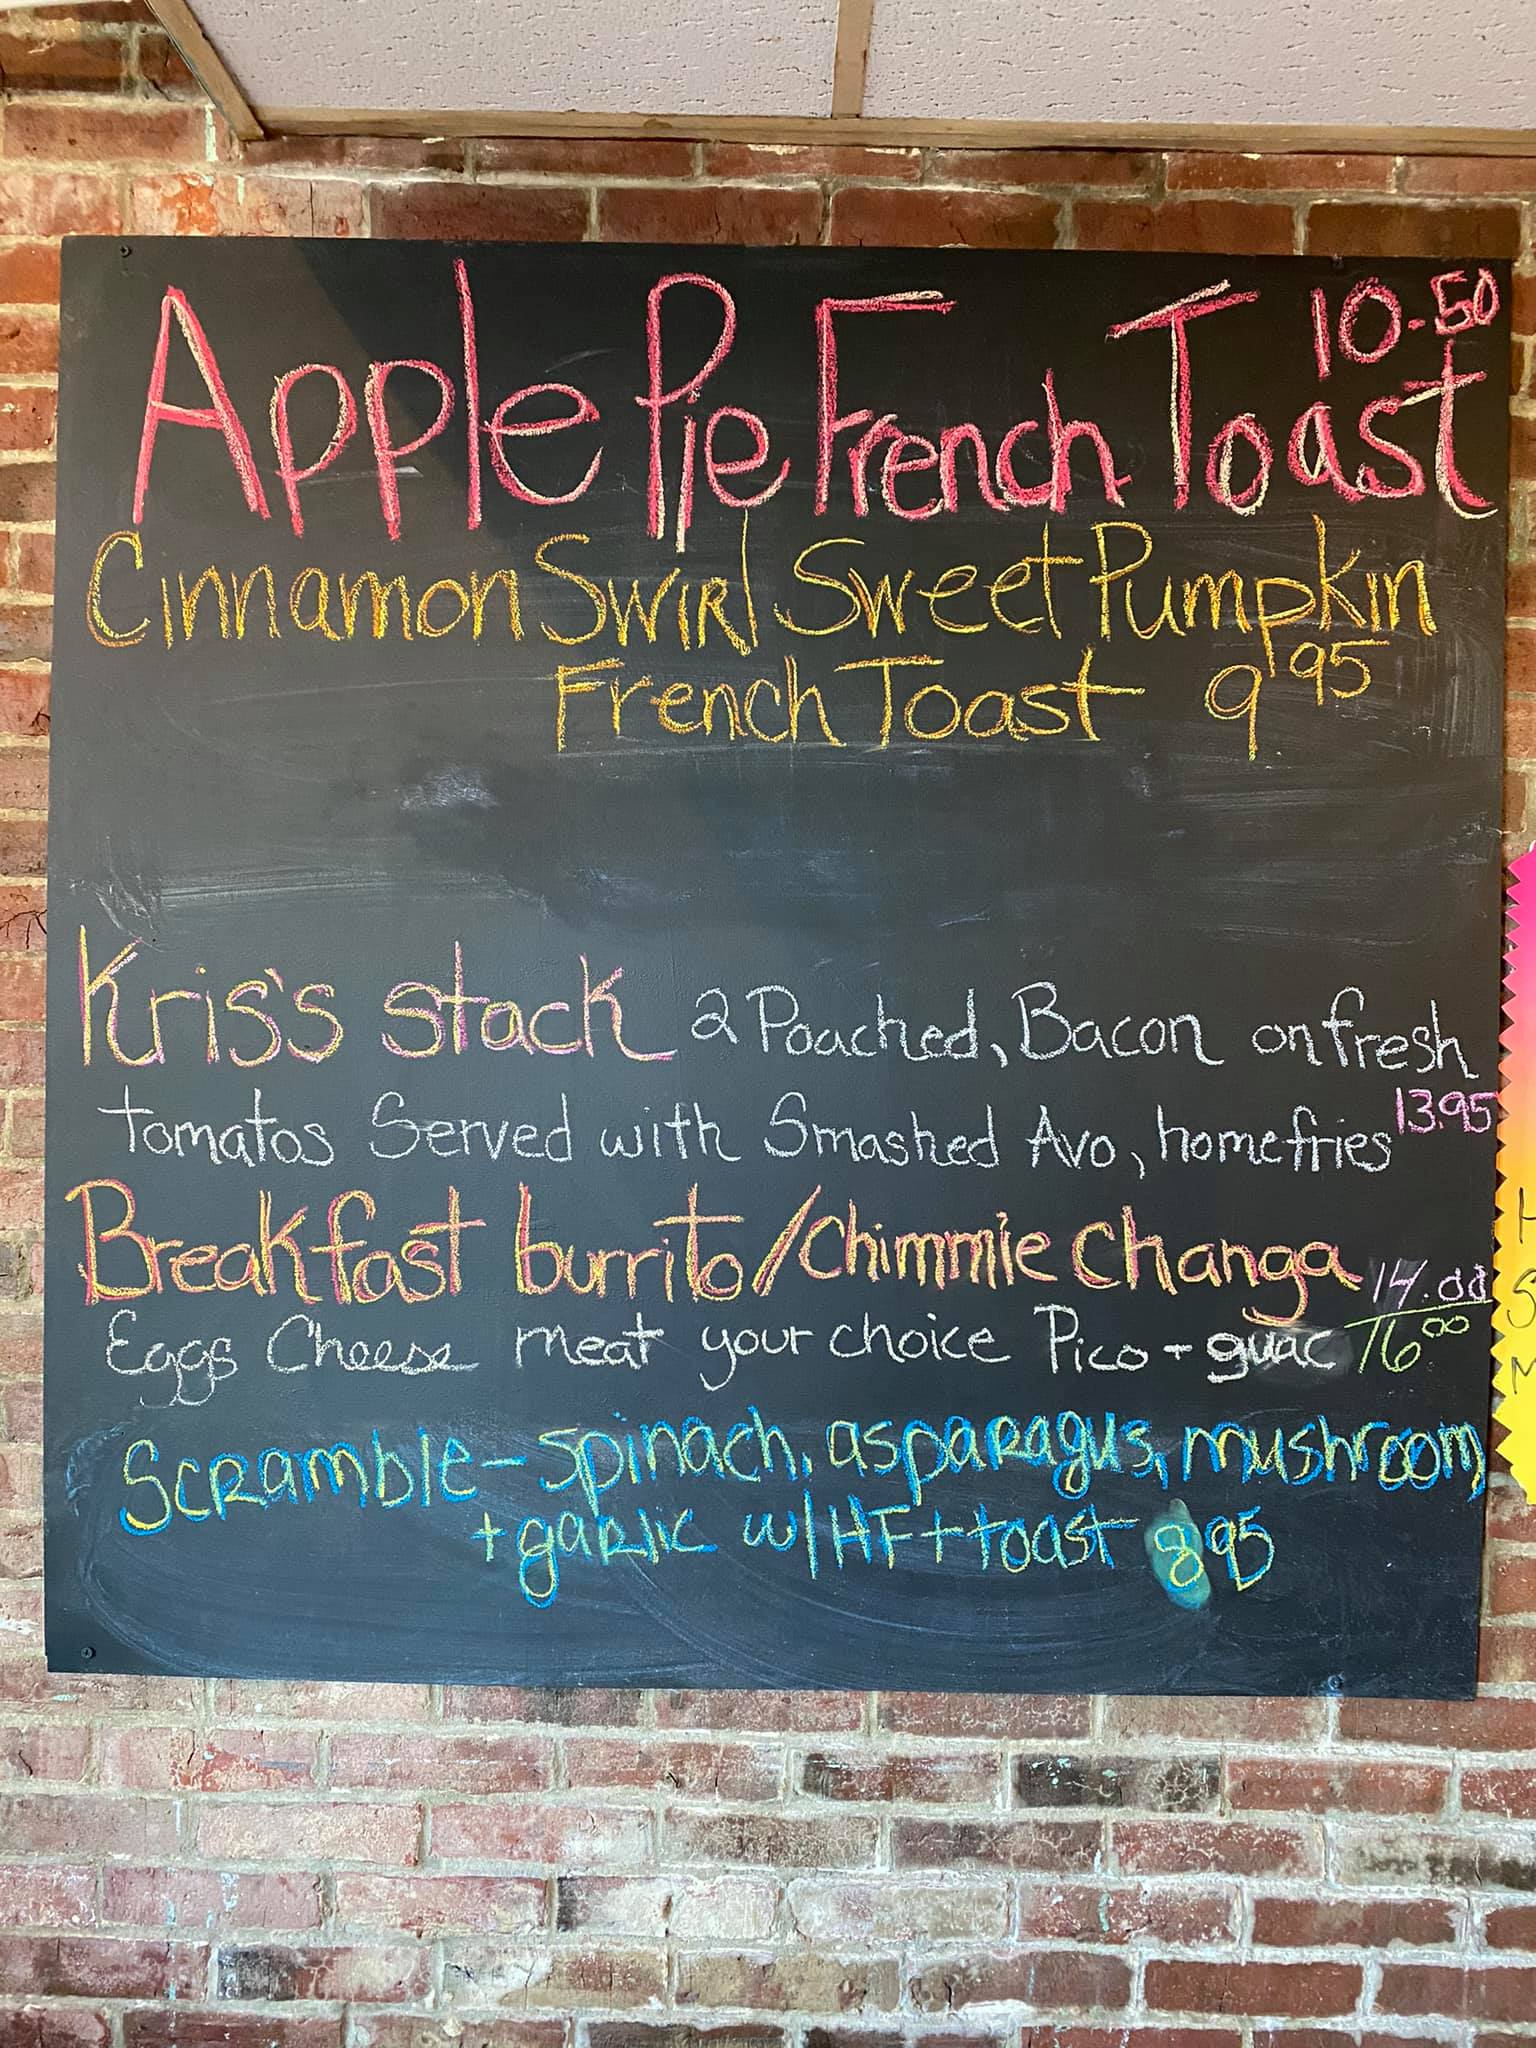 Apple Pie French Toast 10.50
Cinnamon Swirl Sweet Pumpkin
French Toast 9 95
Kris's stack 2 Poached, Bacon on fresh
tomatos Served with Smashed Avo, homefries 13.95
Breakfast burrito/Chimmie Changa 14.00
Eggs Cheese meat your choice Pico + guac 16 00
Scramble - spinach, asparagus, mushroom,
+ garlic w/ HF + toast 8 95
H
S
M